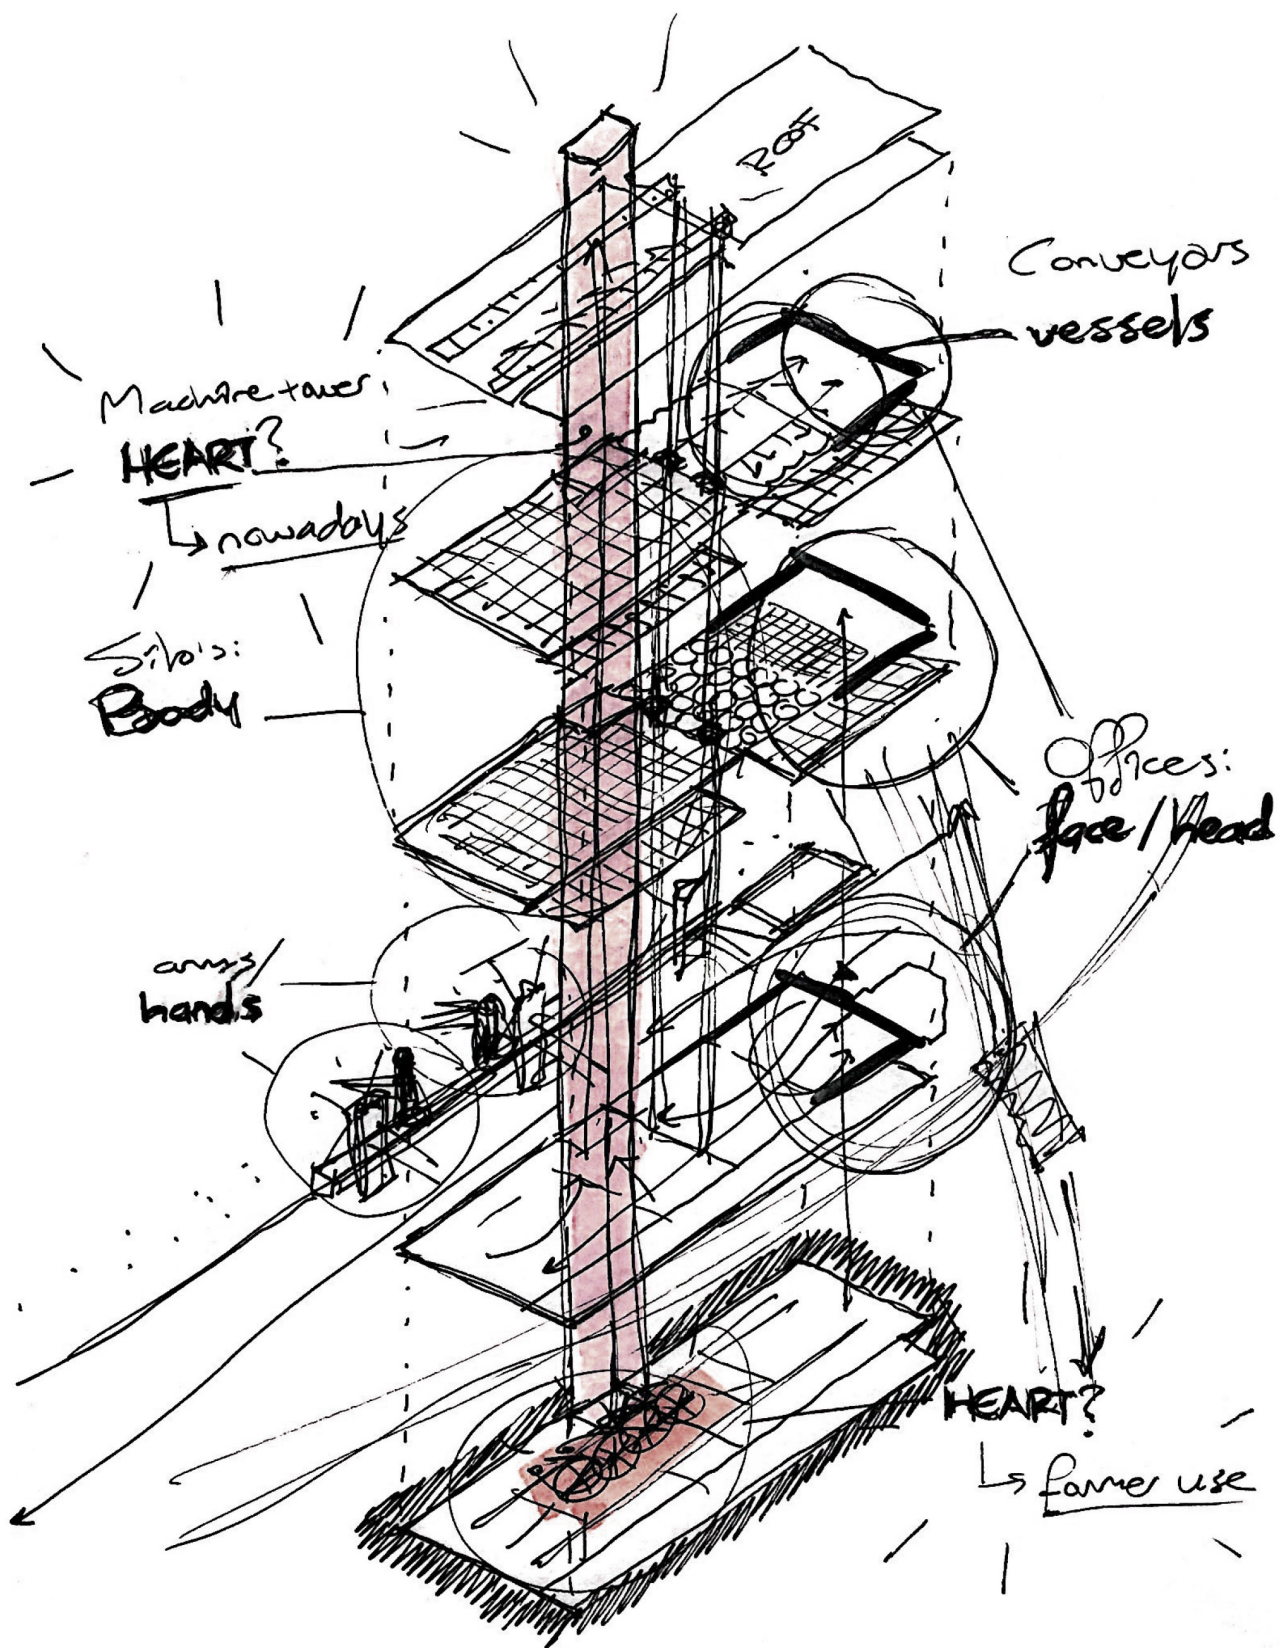 ROOF
Conveyors
vessels
Machine tower:
HEART?
↳ nowadays
Silo's:
Body
Offices:
face/head
arms/
hands
HEART?
↳ former use